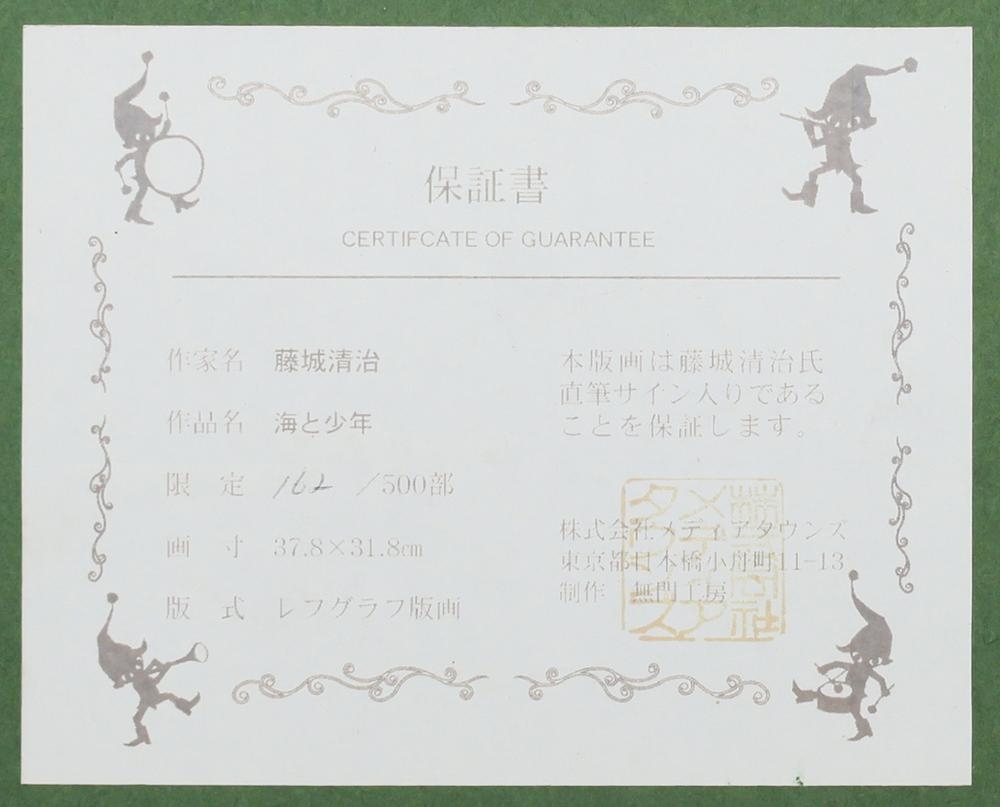 保証書
CERTIFCATE OF GUARANTEE
作家名 藤城清治
作品名 海と少年
限 定 162 /500部
画 寸 37.8×31.8cm
版 式 レフグラフ版画
本版画は藤城清治氏
直筆サイン入りである
ことを保証します。
株式会社メディアタウンズ
東京都日本橋小舟町11-13
制作 無門工房
株式会社
メディア
タウンズ